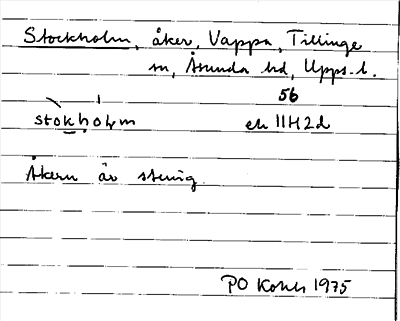 Stockholm, åker, Vappa, Tillinge
sn, Åsunda hd, Upps. l.
56
stokholm ek 11H2d
Åkern är stenig.
PO Kohls 1975